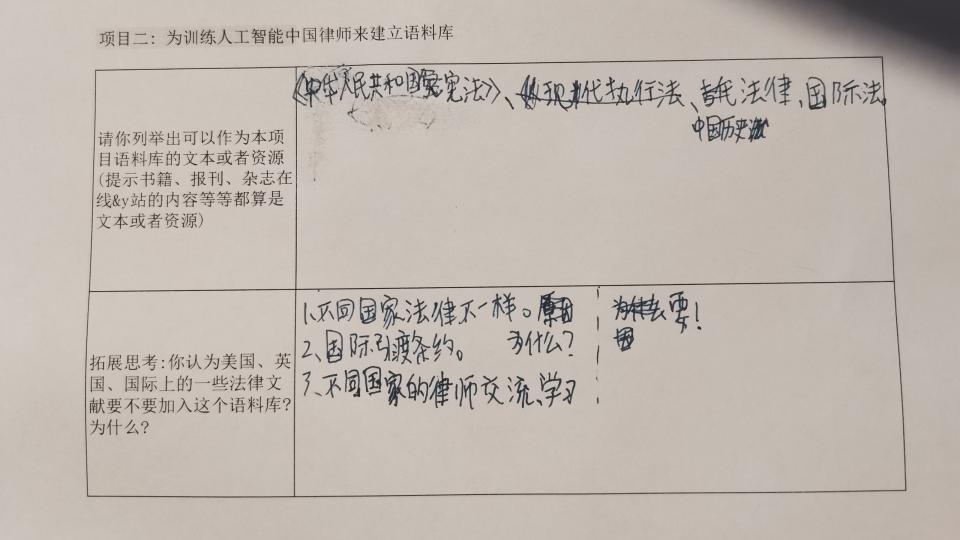 项目二：为训练人工智能中国律师来建立语料库
请你列举出可以作为本项
目语料库的文本或者资源
(提示书籍、报刊、杂志在
线&y站的内容等等都算是
文本或者资源)
《中华人民共和国宪法》、现代执行法、古代法律、国际法。
中国历史
拓展思考:你认为美国、英
国、国际上的一些法律文
献要不要加入这个语料库?
为什么?
1、不同国家法律不一样。原因
2、国际引渡条约。 为什么?
3、不同国家的律师交流、学习
要!